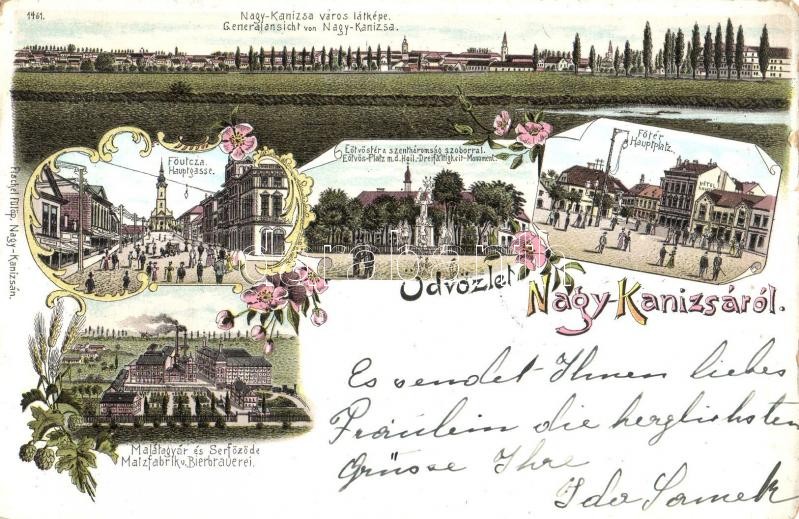 1461.
Nagy-Kanizsa város látképe.
Generalansicht von Nagy-Kanizsa.
Főutcza.
Hauptgasse.
Eötvöstér a szentháromság szoborral.
Eötvös-Platz m.d. Heil.-Dreifaltigkeit-Monument.
Főtér.
Hauptplatz.
Üdvözlet
Nagy-Kanizsáról.
Fischel Fülöp, Nagy-Kanizsán.
Malátagyár és Serfőzöde
Malzfabrik u. Bierbrauerei.
Es sendet Ihnen liebes
Fräulein die herzlichsten
Grüsse Ihre
Ida Samek